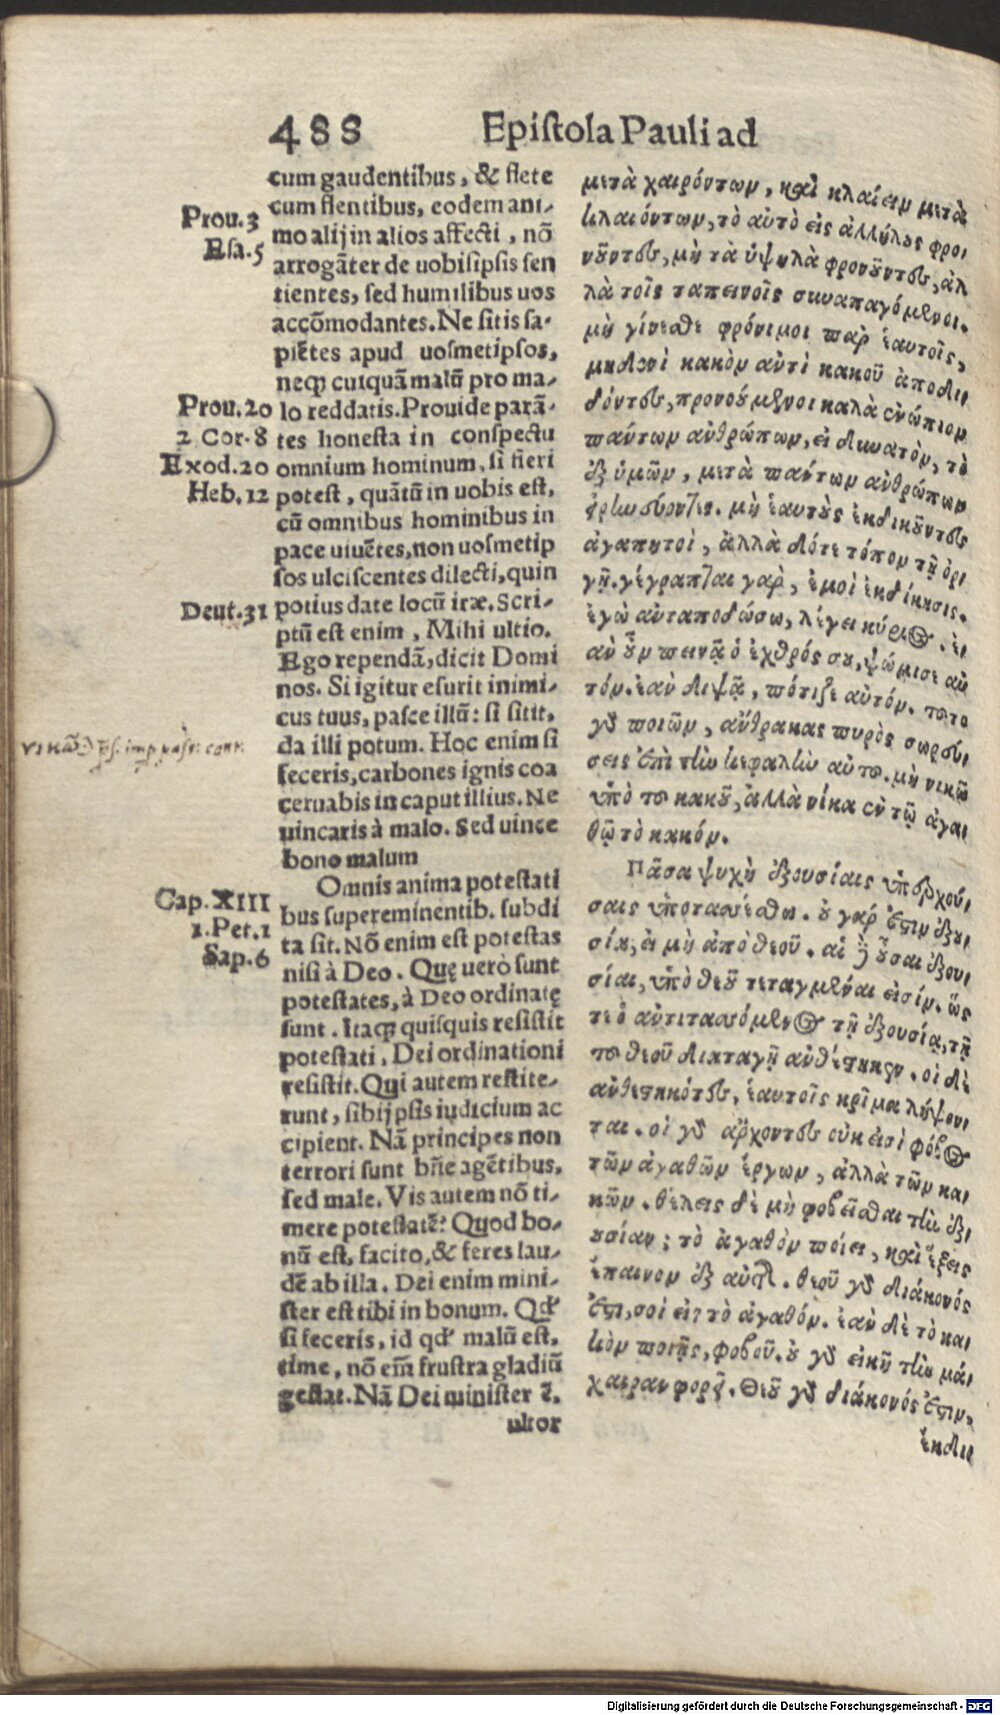 488
Epistola Pauli ad
cum gaudentibus, & flete
cum flentibus, eodem ani-
mo alij in alios affecti, nõ
arrogãter de uobisipsis sen
tientes, sed humilibus uos
accõmodantes. Ne sitis sa-
piẽtes apud uosmetipsos,
neqȝ cuiquã malũ pro ma-
lo reddatis. Prouide parã-
tes honesta in conspectu
omnium hominum, si fieri
potest, quãtũ in uobis est,
cũ omnibus hominibus in
pace uiuẽtes, non uosmetip
sos ulciscentes dilecti, quin
potius date locũ iræ. Scri-
ptũ est enim, Mihi ultio.
Ego rependã, dicit Domi
nos. Si igitur esurit inimi-
cus tuus, pasce illũ: si sitit,
da illi potum. Hoc enim si
feceris, carbones ignis coa
ceruabis in caput illius. Ne
uincaris à malo. Sed uince
bono malum
Omnis anima potestati
bus supereminentib. subdi
ta sit. Nõ enim est potestas
nisi à Deo. Quę uerò sunt
potestates, à Deo ordinatę
sunt. Itaqȝ quisquis resistit
potestati, Dei ordinationi
resistit. Qui autem restite-
runt, sibijpsis iudicium ac
cipient. Nã principes non
terrori sunt bñe agẽtibus,
sed male. Vis autem nõ ti-
mere potestatẽ? Quod bo-
nũ est, facito, & feres lau-
dẽ ab illa. Dei enim mini-
ster est tibi in bonum. Qđ
si feceris, id qđ malũ est,
time, nõ em̃ frustra gladiũ
gestat. Nã Dei minister ẽ.
ultor
Prou. 3
Esa. 5
Prou. 20
2 Cor. 8
Exod. 20
Heb. 12
Deut. 31
Cap. XIII
1. Pet. 1
Sap. 6
μετὰ χαιρόντων, καὶ κλαίειν μετὰ
κλαιόντων, τὸ αὐτὸ εἰς ἀλλήλους φρο
νοῦντες, μὴ τὰ ὑψηλὰ φρονοῦντες, ἀλ
λὰ τοῖς ταπεινοῖς συναπαγόμενοι.
μὴ γίνεσθε φρόνιμοι παρ ἑαυτοῖς,
μηδενὶ κακὸν αὐτὶ κακοῦ ἀποδι
δόντες, προνούμενοι καλὰ ἐνώπιον
πάντων ἀνθρώπων, εἰ δυνατὸν, τὸ
ἐξ ὑμῶν, μετὰ πάντων ἀνθρώπων
εἰρηνεύοντες. μὴ ἑαυτοὺς ἐκδικοῦντες
ἀγαπητοὶ, ἀλλὰ δότε τόπον τῇ ὀρ
γῇ. γέγραπται γαρ, ἐμοὶ ἐκδίκησις.
ἐγὼ ἀνταποδώσω, λέγει κύριος. ἐ
ὰν οὖν πεινᾷ ὁ ἐχθρός σου, ψώμιζε αὐ
τόν. ἐὰν διψᾷ, πότιζε αὐτόν. τοῦτο
γὰρ ποιῶν, ἄνθρακας πυρὸς σωρεύ
σεις ἐπὶ τὴν κεφαλὴν αὐτοῦ. μὴ νικῶ
ὑπὸ τοῦ κακοῦ, ἀλλὰ νίκα ἐν τῷ ἀγα
θῷ τὸ κακόν.
Πᾶσα ψυχὴ ἐξουσίαις ὑπερεχού
σαις ὑποτασσέσθω. οὐ γάρ ἐστιν ἐξου
σία, εἰ μὴ ἀπὸ θεοῦ. αἱ δὲ οὖσαι ἐξου
σίαι, ὑπὸ θεοῦ τεταγμέναι εἰσίν. ὥς
τε ὁ ἀντιτασσόμενος τῇ ἐξουσίᾳ, τῇ
τοῦ θεοῦ διαταγῇ ἀνθέστηκεν. οἱ δὲ
ἀνθεστηκότες, ἑαυτοῖς κρῖμα λήψον
ται. οἱ γὰρ ἄρχοντες οὐκ εἰσὶ φόβος
τῶν ἀγαθῶν ἔργων, ἀλλὰ τῶν κα
κῶν. θέλεις δὲ μὴ φοβεῖσθαι τὴν ἐξ
ουσίαν; τὸ ἀγαθὸν ποίει, καὶ ἕξεις
ἔπαινον ἐξ αὐτῆς. θεοῦ γὰρ διάκονός
ἐστι, σοὶ εἰς τὸ ἀγαθόν. ἐὰν δὲ τὸ κα
κὸν ποιῇς, φοβοῦ. οὐ γὰρ εἰκῆ τὴν μά
χαιραν φορεῖ. Θεοῦ γὰρ διάκονός ἐστιν,
ἔκδι
Digitalisierung gefördert durch die Deutsche Forschungsgemeinschaft - DFG